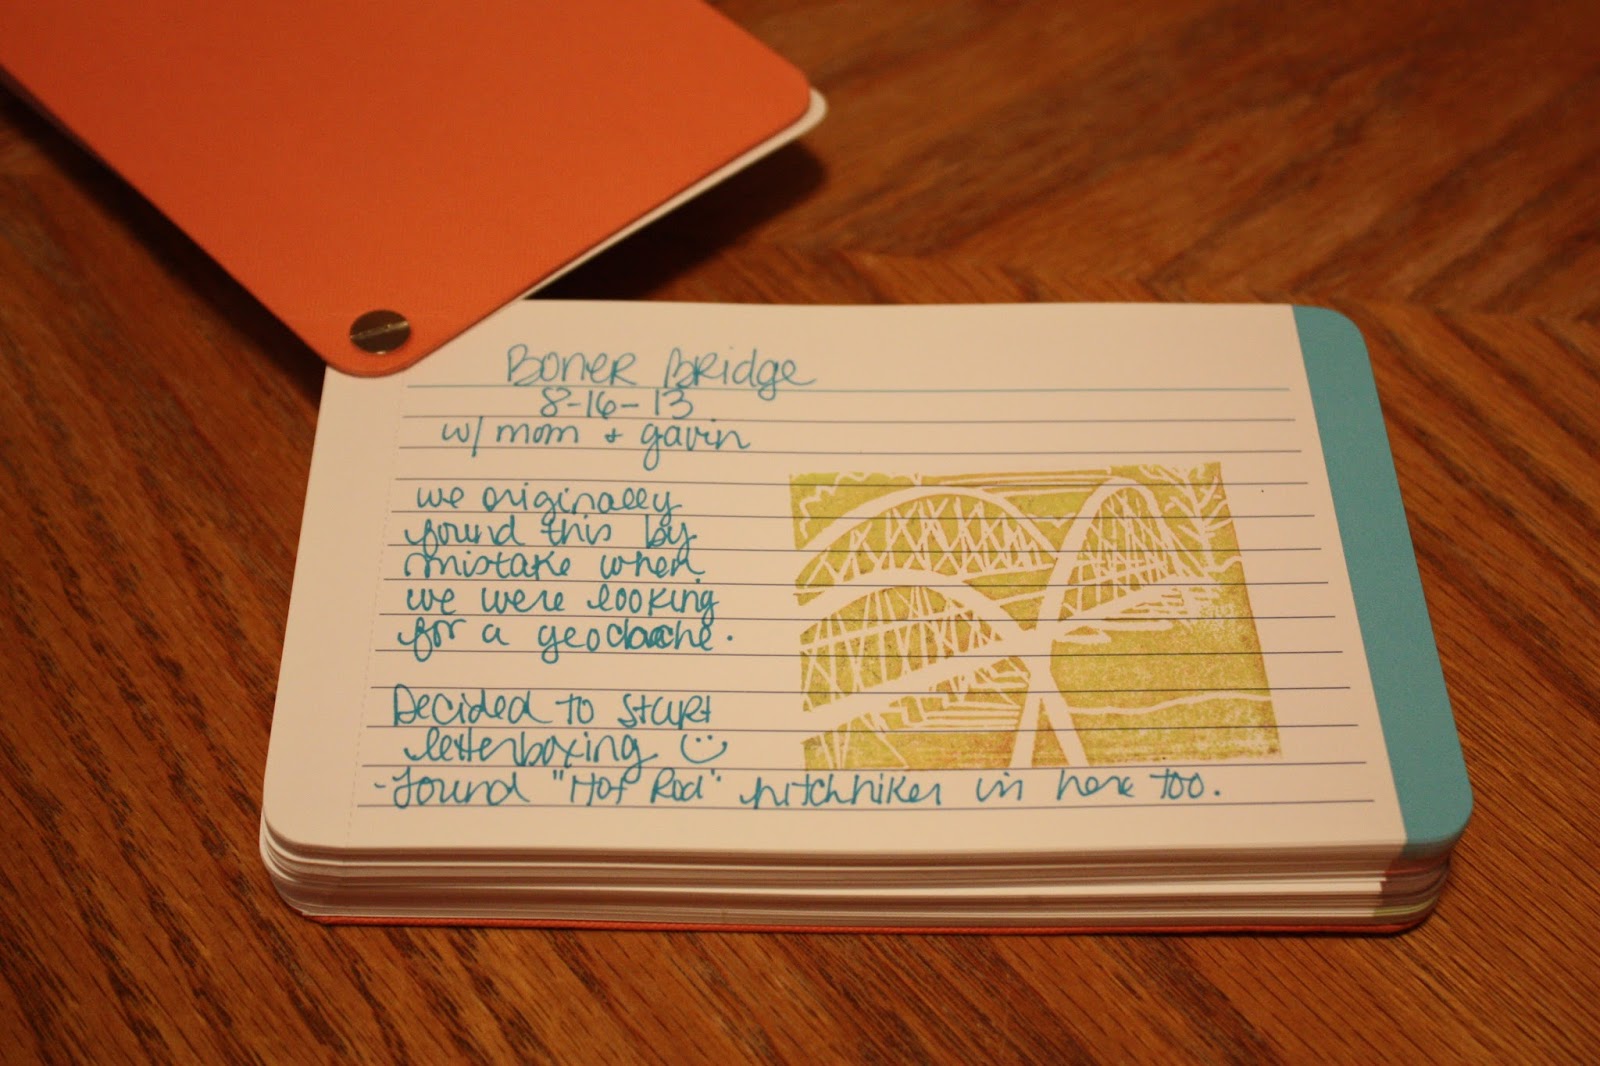 Boner Bridge
8-16-13
w/ mom + gavin
we originally
found this by
mistake when
we were looking
for a geocache.
Decided to start
letterboxing ☺
-found "Hot Rod" hitchhiker in here too.